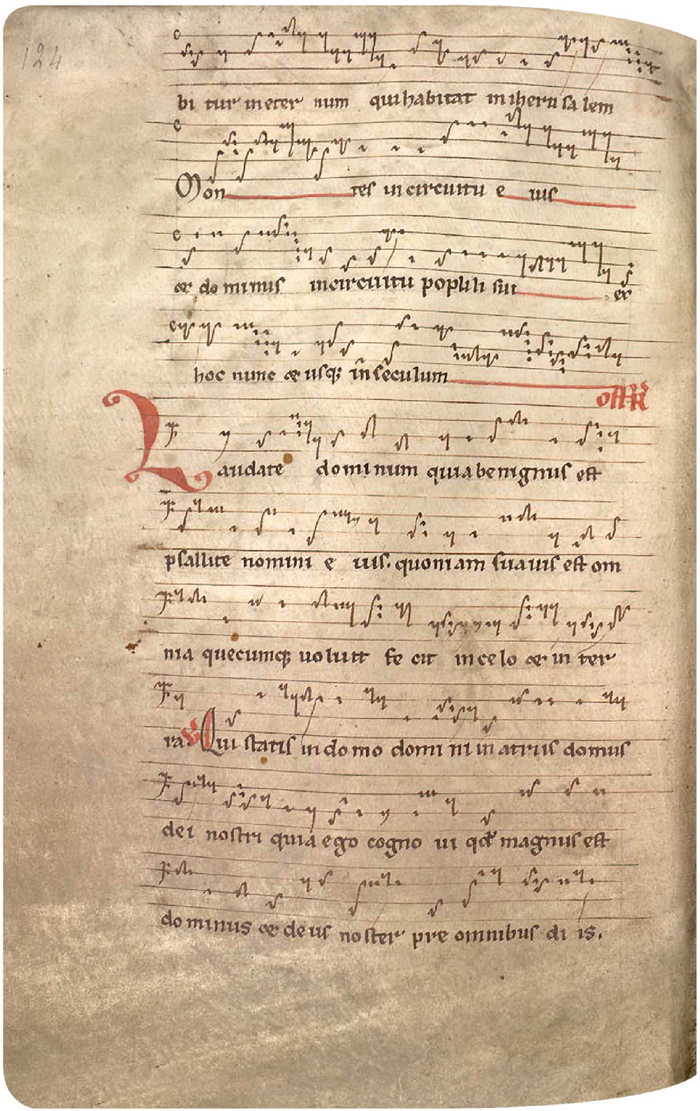 124
bi tur in eter num qui habitat in iheru sa lem
Mon tes in circuitu e ius
et do minus in circuitu populi sui ex
hoc nunc et usq; in seculum
off
Laudate dominum quia benignus est
psallite nomini e ius. quoniam suauis est om
nia quecumq; uoluit fe cit in celo et in ter
ra. Qui statis in do mo domi ni in atriis domus
dei nostri quia ego cogno ui qd magnus est
do minus et deus noster pre omnibus di is.